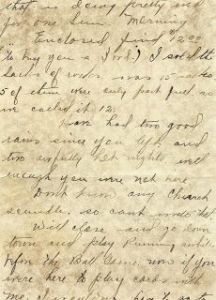 that is being pretty good
for one Sun. Morning
Enclosed find $2.00
to buy you a Book) I sold the
sacks of was 15 sacks
5 of them were only part full so
we called it 12.
Have had two good
rains since you left and
two awfully hot nights well
enough you were not here
Dont know any Church
scandle, so cant write that
Will close and go down
town and play Rummy while
the Ball Game, now if you
were here to play cards with
me,